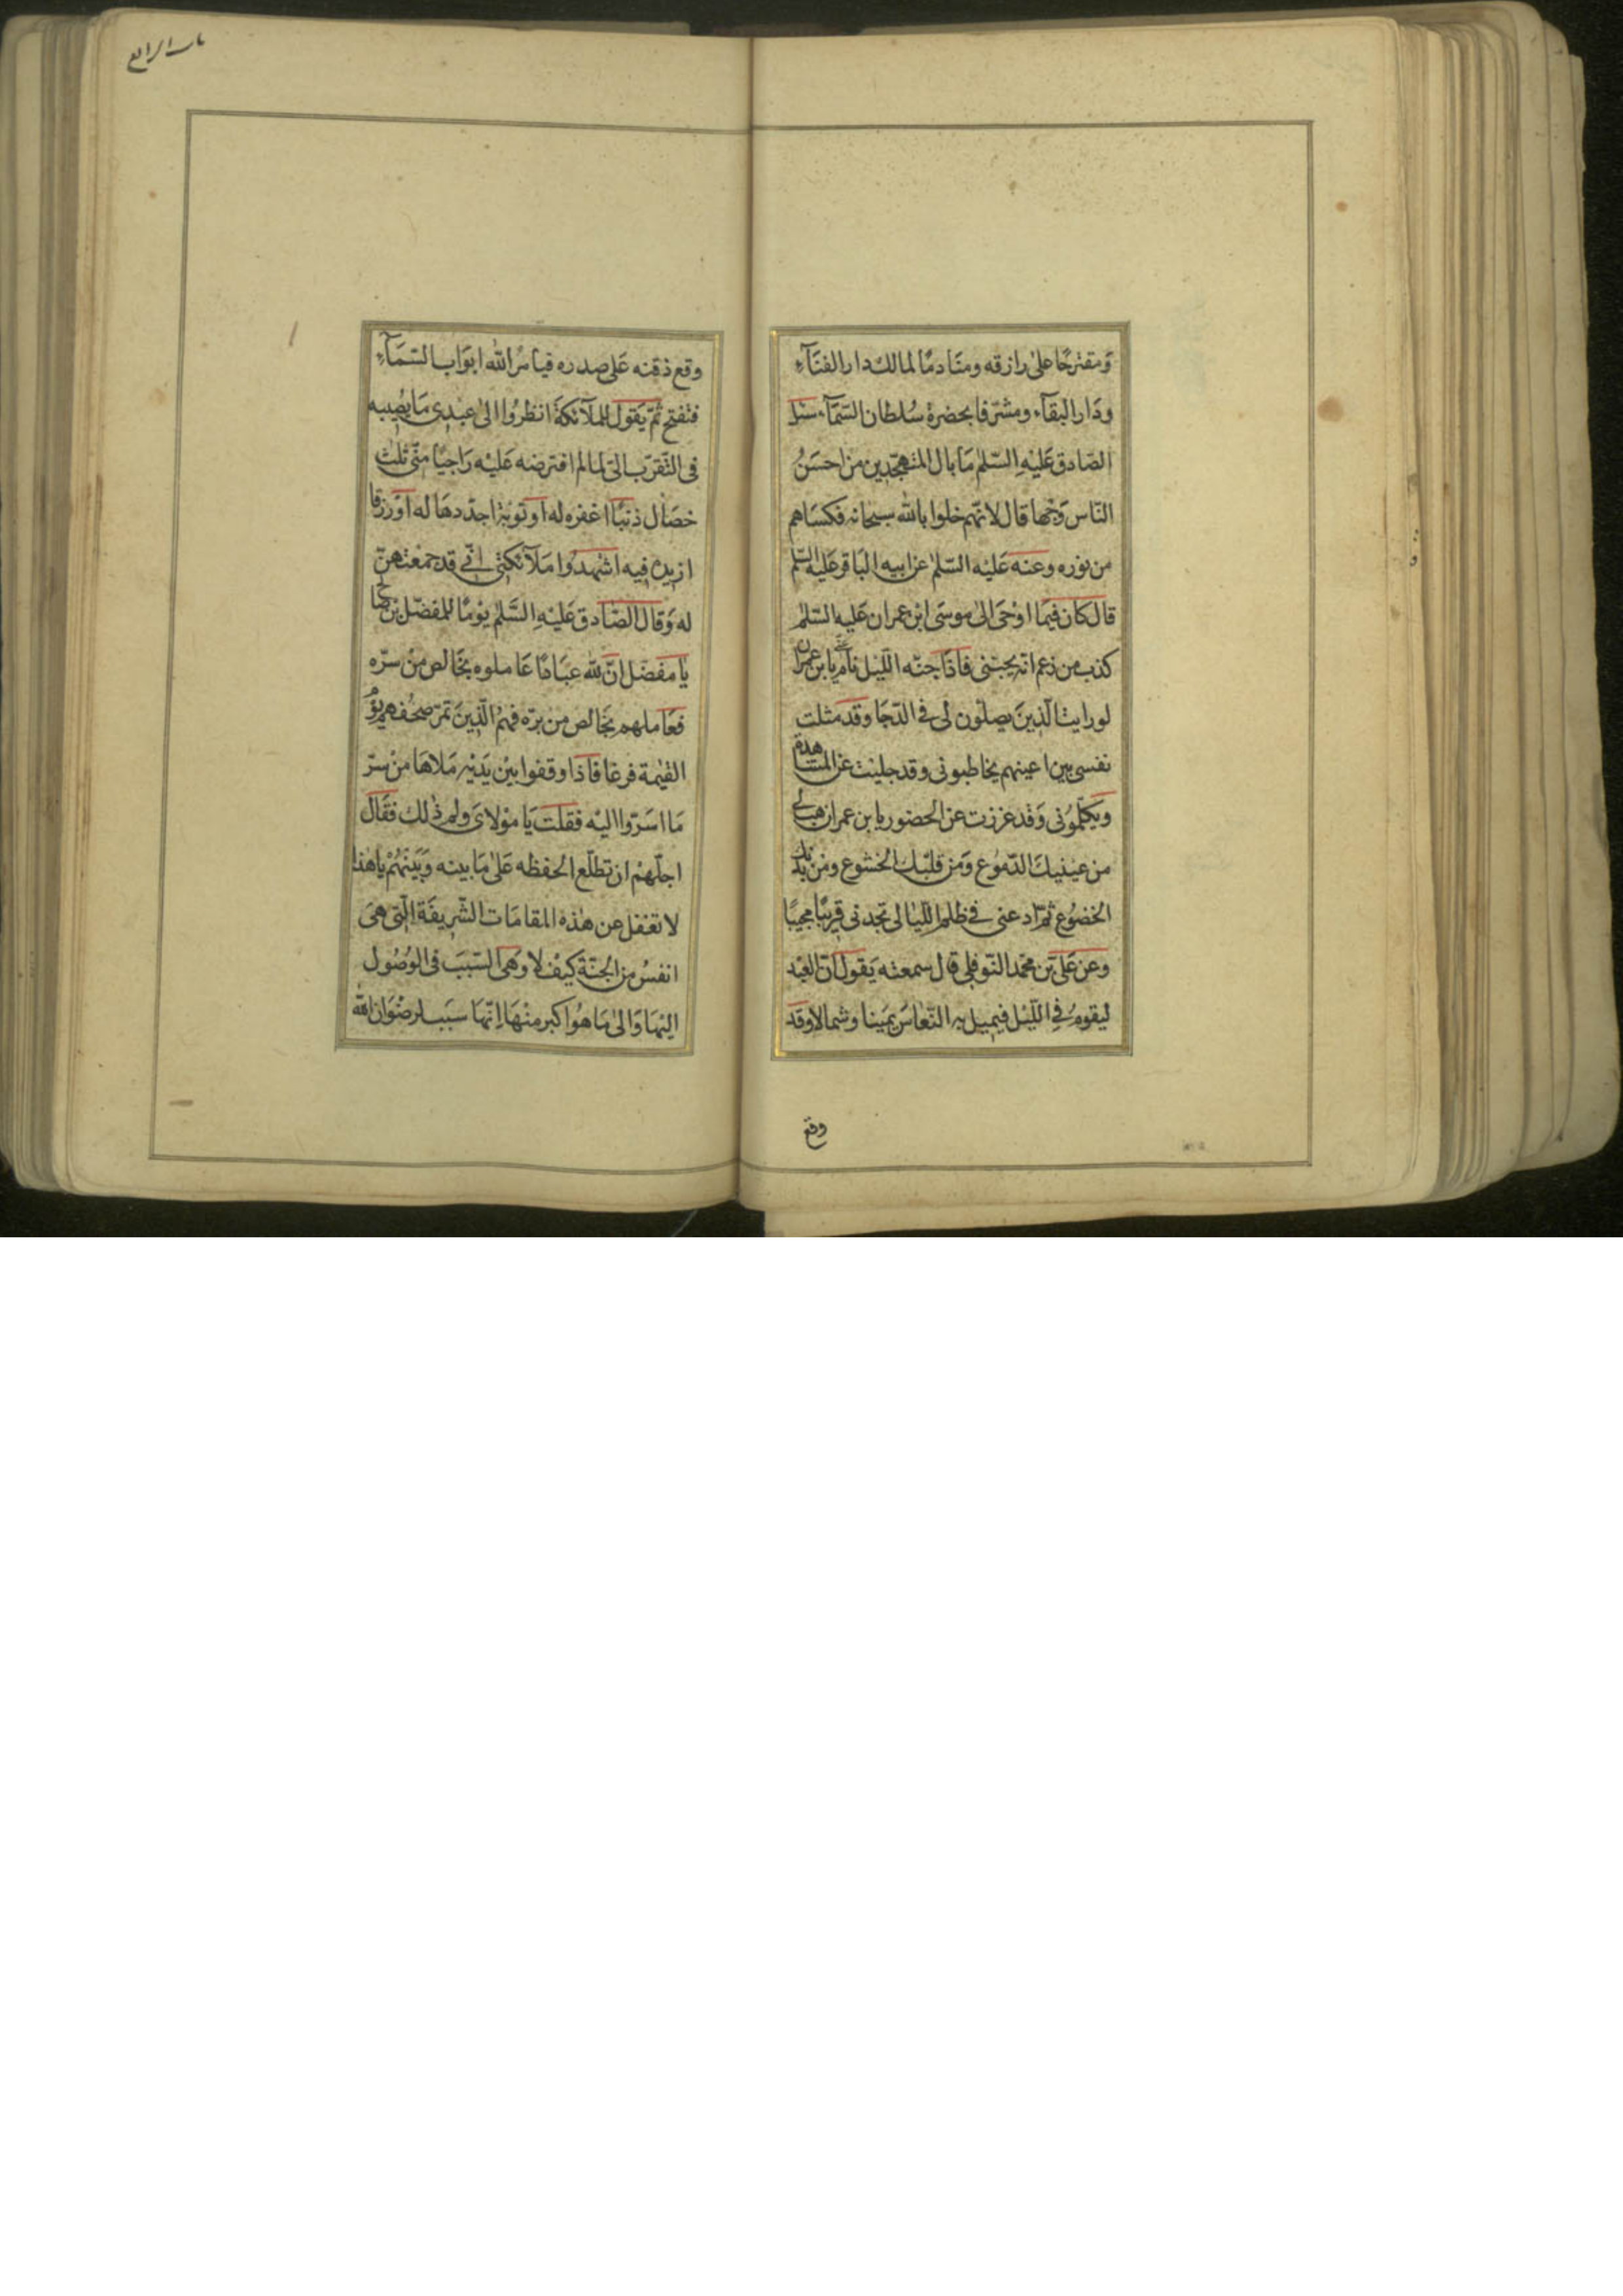 وَمقترحًا علىٰ رازقه ومنَادمًا لمالك دار الفنَآءِ
ودَار البقآء ومشرّفا بحضرة سُلطان السّمآء سئل
الصّادق عَليْهِ السّلم مَا بال المتهجّدين من احسَنُ
النّاس وَجْهًا قال لانّهم خلوا بالله سبحانه فكسَاهم
من نوره وعنه عَليْه السّلم عن ابيه البَاقر عَليْه السّلم
قال كان فيمَا اوْحىَ الىٰ موسىَ ابن عمران عَليه السّلم
كذب من زعم انّه يحبّنى فاذَا جنّه اللّيْل نام عنّى يا بن عمران
لو رايت الّذينَ يصلّون لى فى الدّجا وقد مثلت
نفسى بين اعينهم يخاطبونى وقد جليْت عن المشاهدة
ويَكلّموُنى وَقد عززت عن الحضور يا بن عمران هب لى
من عيْنيكَ الدّموُع وَمن قلبْك الخشوع ومن بدنك
الخضُوع ثمّ ادعنى فى ظلم اللّيَالى تجدنى قريبًا مجيبًا
وعن عَلىّ بن محمّد النّوفلى قال سمعته يَقول انّ العبْد
ليقومُ فى اللّيْل فيميل به النّعَاسَ يمَينا وشمالا وقَد
وقع
باب الرابع
وقع ذقنه عَلى صدره فيأمرُ الله ابوَاب السّمَآءِ
فتفتح ثمّ يَقول للملآئكة انظرُوا الىٰ عبْدى مَا يُصيبه
فى التّقرّب الىّ لما لم افترضه عَليْه رَاجيًا منّى ثلث
خصَال ذنبًا اغفره له او توبة اجدّدهَا له اوْ رزقا
ازيده فيه اشهدُوا مَلآئكتى انّى قد جمعتهنّ
له وَقال الصّادق عَليْهِ السَّلم يوْمًا للمفضّل بن صالح
يا مفضل انّ لله عبَادًا عَاملوه بخَالص من سرّه
فعَاملهم بخَالص من برّه فهمُ الّذينَ تمرّ صحفهم يوْم
القيٰمة فرغا فاذا وقفوا بيْن يَديْه مَلاهَا منْ سرّ
مَا اسَرّوا اليْه فقلت يَا موْلاىَ ولم ذٰلك فقَال
اجلّهمْ ان تطلّع الحفظه عَلىٰ مَا بينه وَبَيْنهُمْ يا هٰذا
لا تغفل عن هٰذه المقامَات الشّريفَة الّتى هىَ
انفسُ من الجنّة كيْف لا وهَى السّبَب فى الوُصُول
اليْهَا وَالىٰ مَا هُو اكبر منْهَا انّهَا سَبَب لرضْوَان الله